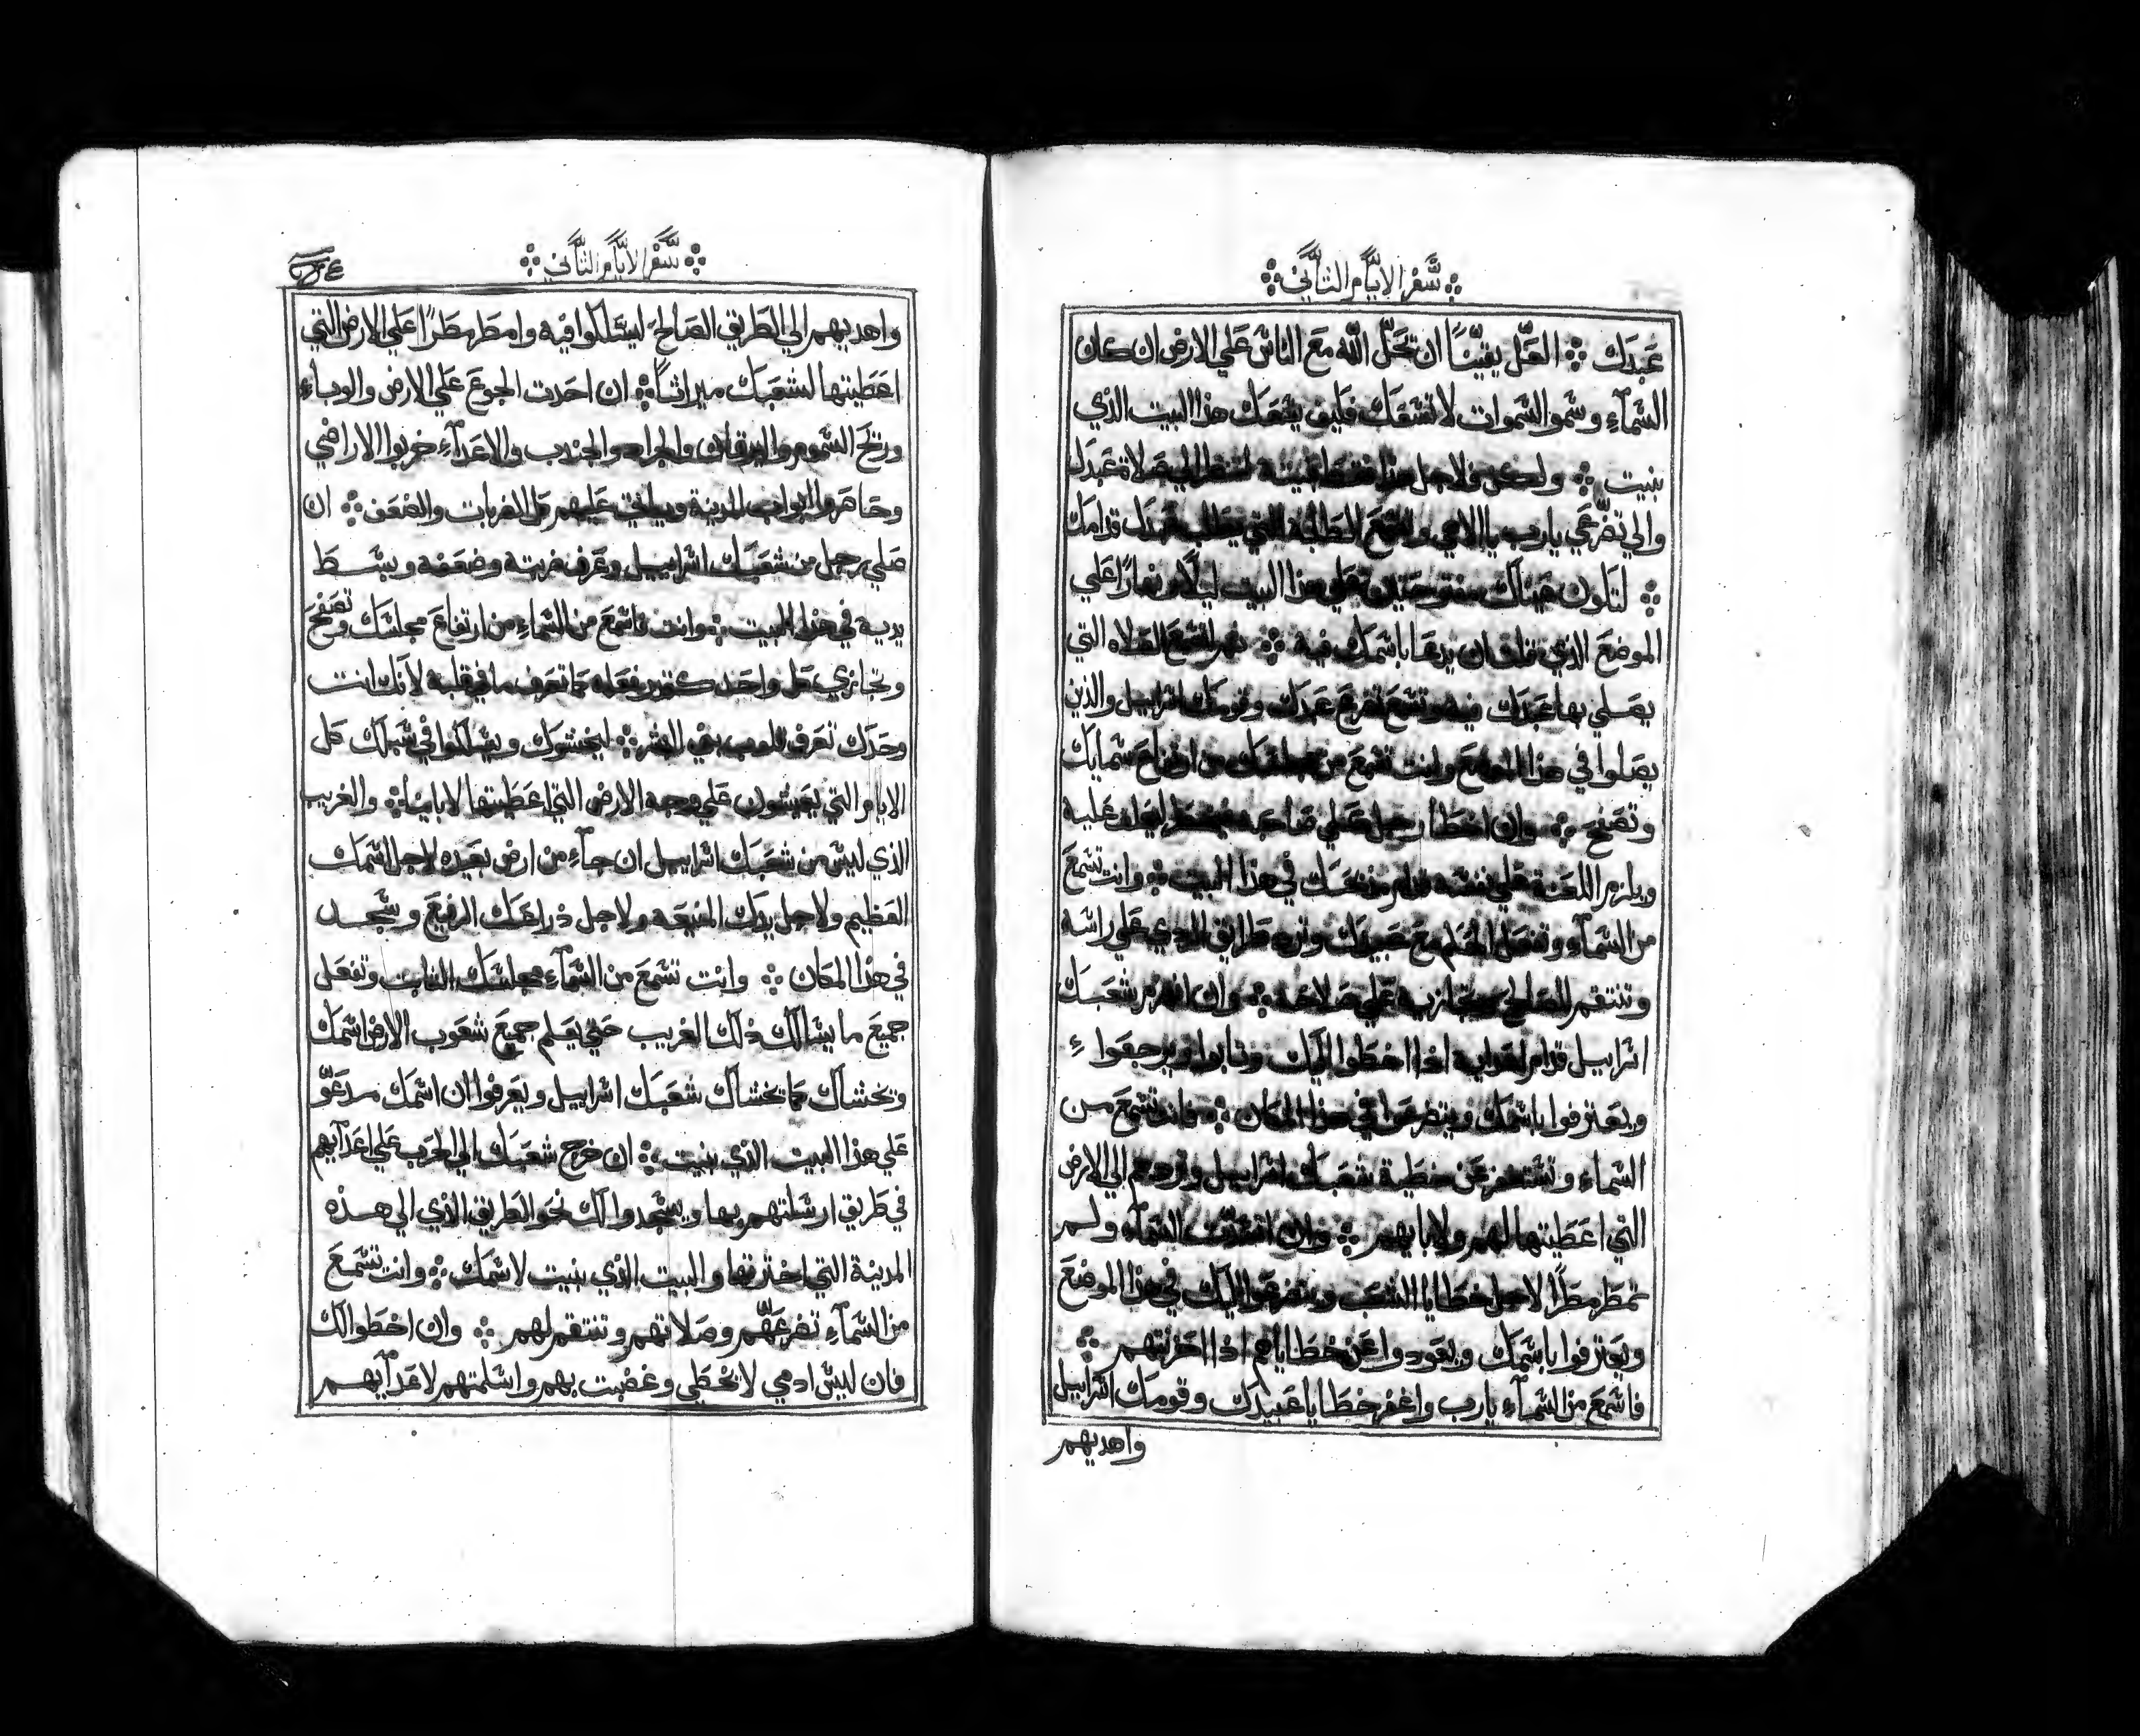 سفر الايام الثاني
عبدك ܀ العل يقينًا ان تحل الله مع الناس على الارض ان كان
السماء وسمو السموات لا تسعك فكيف يسعك هذا البيت الذي
بنيت ܀ ولكن ولاجل هذا فقط لتنظر الي صلاة عبدك
والي تضرعي يارب يا الاهي واسمع الطلبة التي يطلب عبدك قدامك
܀ لتكون عيناك مفتوحتين علي هذا البيت ليلًا ونهارًا علي
الموضع الذي ان يدعا باسمك فيه ܀ لتسمع الصلاه التي
يصلي بها عبدك فيه وتسمع تضرع عبدك وقومك اسراييل والذين
يصلوا في هذا الموضع وانت تسمع من مجلسك من ارتفاع سمايك
وتصفح ܀ وان اخطا رجل علي صاحبه عليه
ويلزم اللعنة علي نفسه قدام مذبحك في هذا البيت ܀ وانت تسمع
من السماء وتفعل الحكم مع عبيدك وترد طرايق الردي علي راسه
وتنتقم للصالح وتجازيه علي صلاحه ܀ وان انهزم شعبك
اسراييل قدام اعدايه اذا اخطوا اليك وتابوا ويرجعوا
ويعترفوا باسمك ويتضرعوا في هذا المكان ܀ فانت تسمع من
السماء وتستغفر عن خطية شعبك اسراييل وتردهم الي الارض
التي اعطيتها لهم ولابايهم ܀ وان السماء ولم
تمطر مطرًا لاجل خطايا الشعب ويتضرعوا اليك في هذا الموضع
ويعترفوا باسمك ويعودوا عن خطاياهم اذا احزنتهم ܀
فاسمع من السماء يارب واغفر خطايا عبيدك وقومك اسراييل
واهديهم
سفر الايام الثاني
واهديهم الي الطريق الصالح ليسلكوا فيه وامطر مطرًا علي الارض التي
اعطيتها لشعبك ميراثًا ܀ ان احدت الجوع علي الارض والوباء
وريح السموم واليرقان والجراد والجندب والاعداء خربوا الاراضي
وحاصروا ابواب المدينة وياتي عليهم كل الضربات والضعف ܀ ان
صلي رجل من شعبك اسراييل وعرف ضربته وضعفه وبسط
يديه في هذا البيت ܀ وانت فاسمع من السماء من ارتفاع مجلسك وتصفح
وتجازي كل واحد فعله كما تعرف ما في قلبه لانك انت
وحدك تعرف قلوب بني البشر ܀ ليخشوك ويسلكوا في سبلك كل
الايام التي يعيشون علي وجه الارض التي اعطيتها لاباينا ܀ والغريب
الذي ليس من شعبك اسراييل ان جاء من ارض بعيده لاجل اسمك
العظيم ولاجل يدك المنيعه ولاجل ذراعك الرفيع وسجد
في هذا المكان ܀ وانت تسمع من السماء مجلسك الثابت وتفعل
جميع ما يسالك ذلك الغريب حتي يعلم جميع شعوب الارض اسمك
وتخشاك كما يخشاك شعبك اسراييل ويعرفوا ان اسمك مدعو
علي هذا البيت الذي بنيت ܀ ان خرج شعبك الي الحرب علي اعدايهم
في طريق ارسلتهم بها ويسجدوا لك نحو الطريق الذي الي هذه
المدينة التي اخترتها والبيت الذي بنيت لاسمك ܀ وانت تسمع
من السماء تضرعهم وصلاتهم وتنتقم لهم ܀ وان اخطوا لك
فان ليس ادمي لا يخطي وغضبت بهم واسلمتهم لاعدايهم